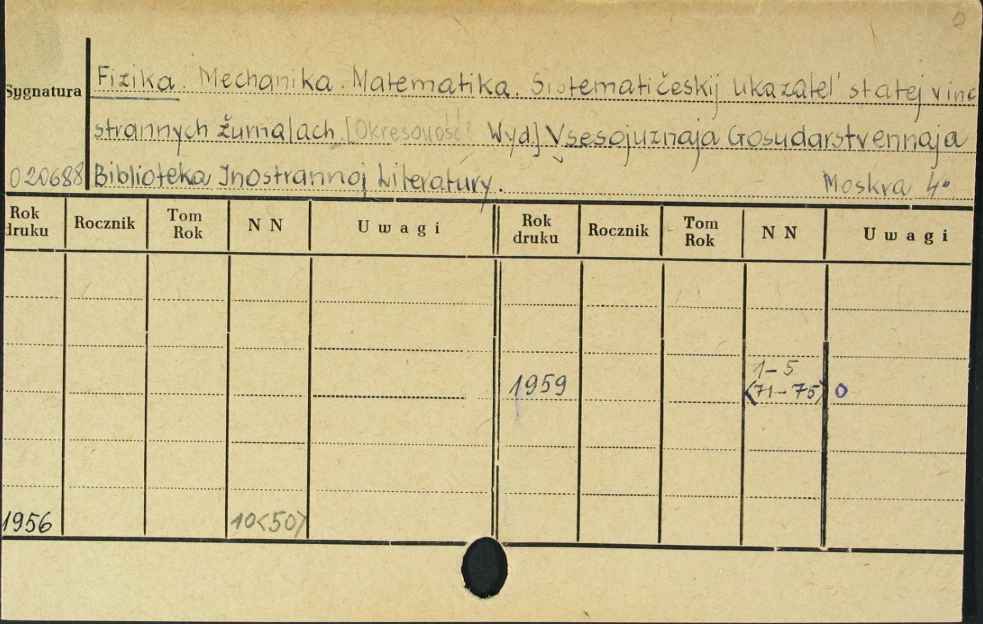 Sygnatura
Fizika. Mechanika. Matematika. Sistematičeskij ukazatel' statej v ino
strannych žurnalach [Okresowość: Wyd] Vsesojuznaja Gosudarstvennaja
020688 Biblioteka Inostrannoj Literatury. Moskva 4°
Rok druku Rocznik Tom Rok N N Uwagi Rok druku Rocznik Tom Rok N N Uwagi
1–5
1959 <71–75> 0
1956 10<50>